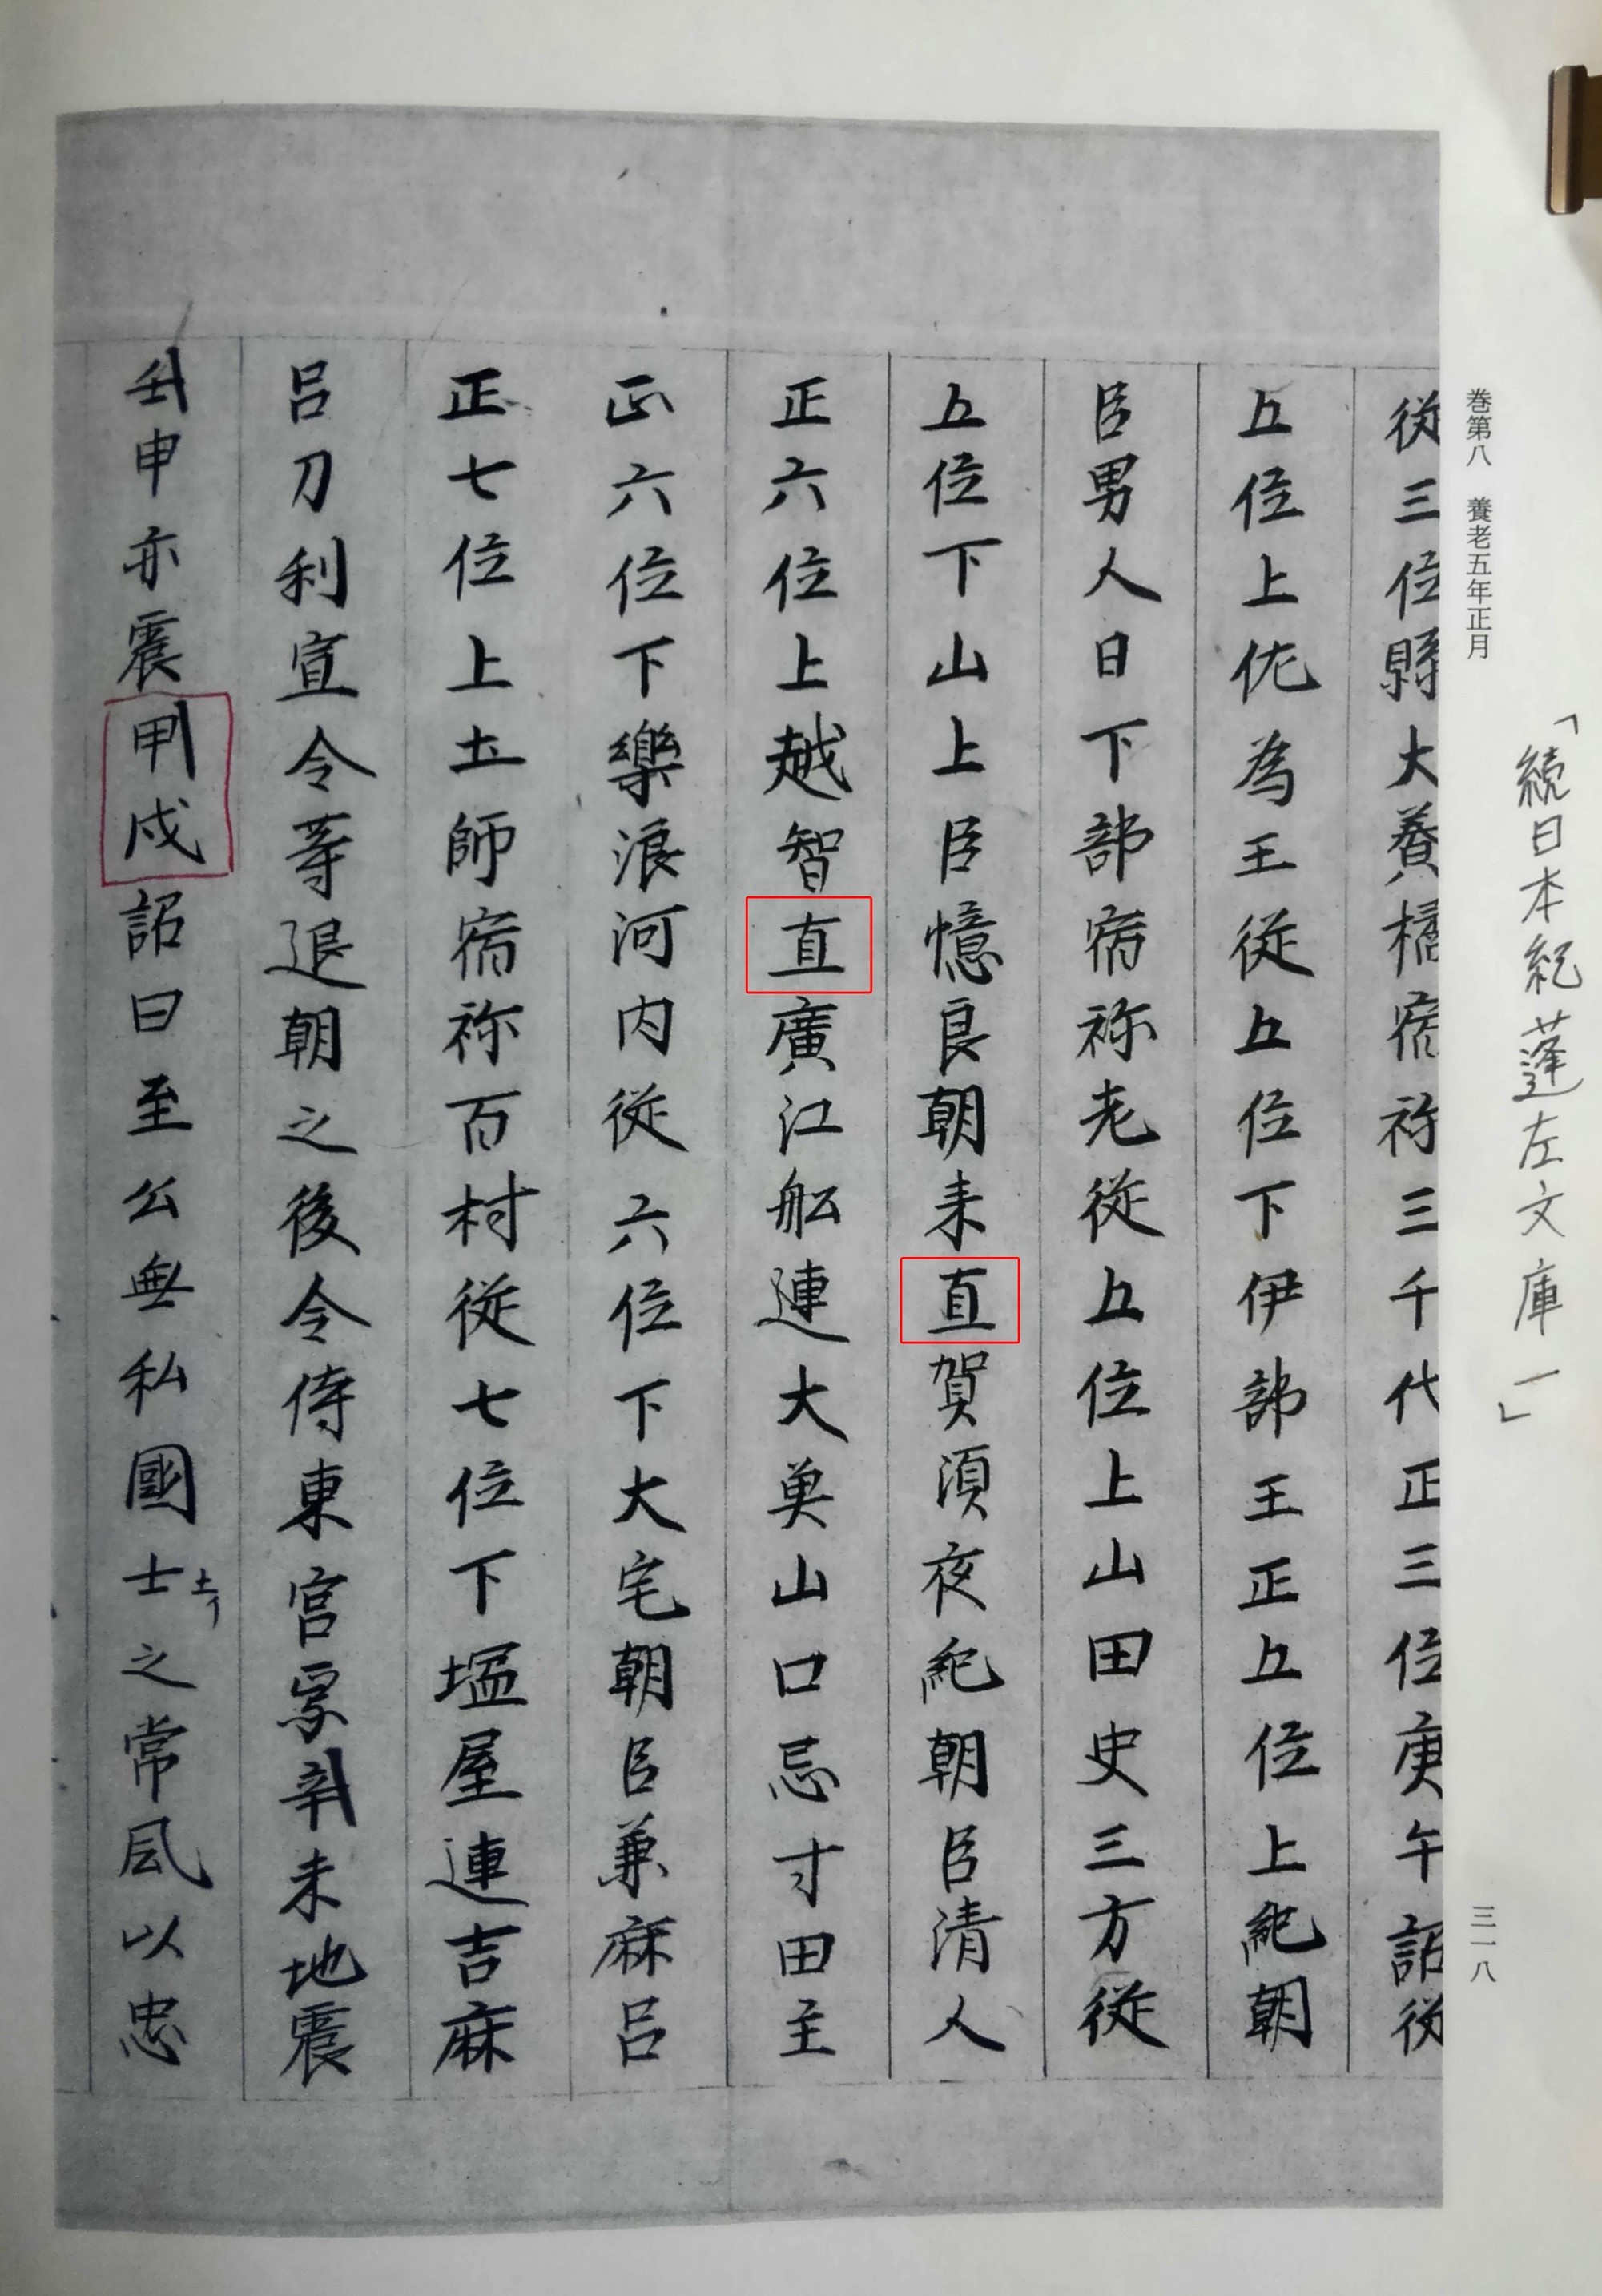 巻第八　養老五年正月
三一八
「続日本紀蓬左文庫一」
従三位縣大養橘宿祢三千代正三位庚午詔従
五位上佐為王従五位下伊部王正五位上紀朝
臣男人日下部宿祢老従五位上山田史三方従
五位下山上臣憶良朝来直賀須夜紀朝臣清人
正六位上越智直廣江船連大魚山口忌寸田主
正六位下樂浪河内従六位下大宅朝臣兼麻呂
正七位上土師宿祢百村従七位下塩屋連吉麻
呂刀利宣令等退朝之後令侍東宮焉辛未地震
壬申亦震甲戌詔曰至公無私國士之常風以忠
土